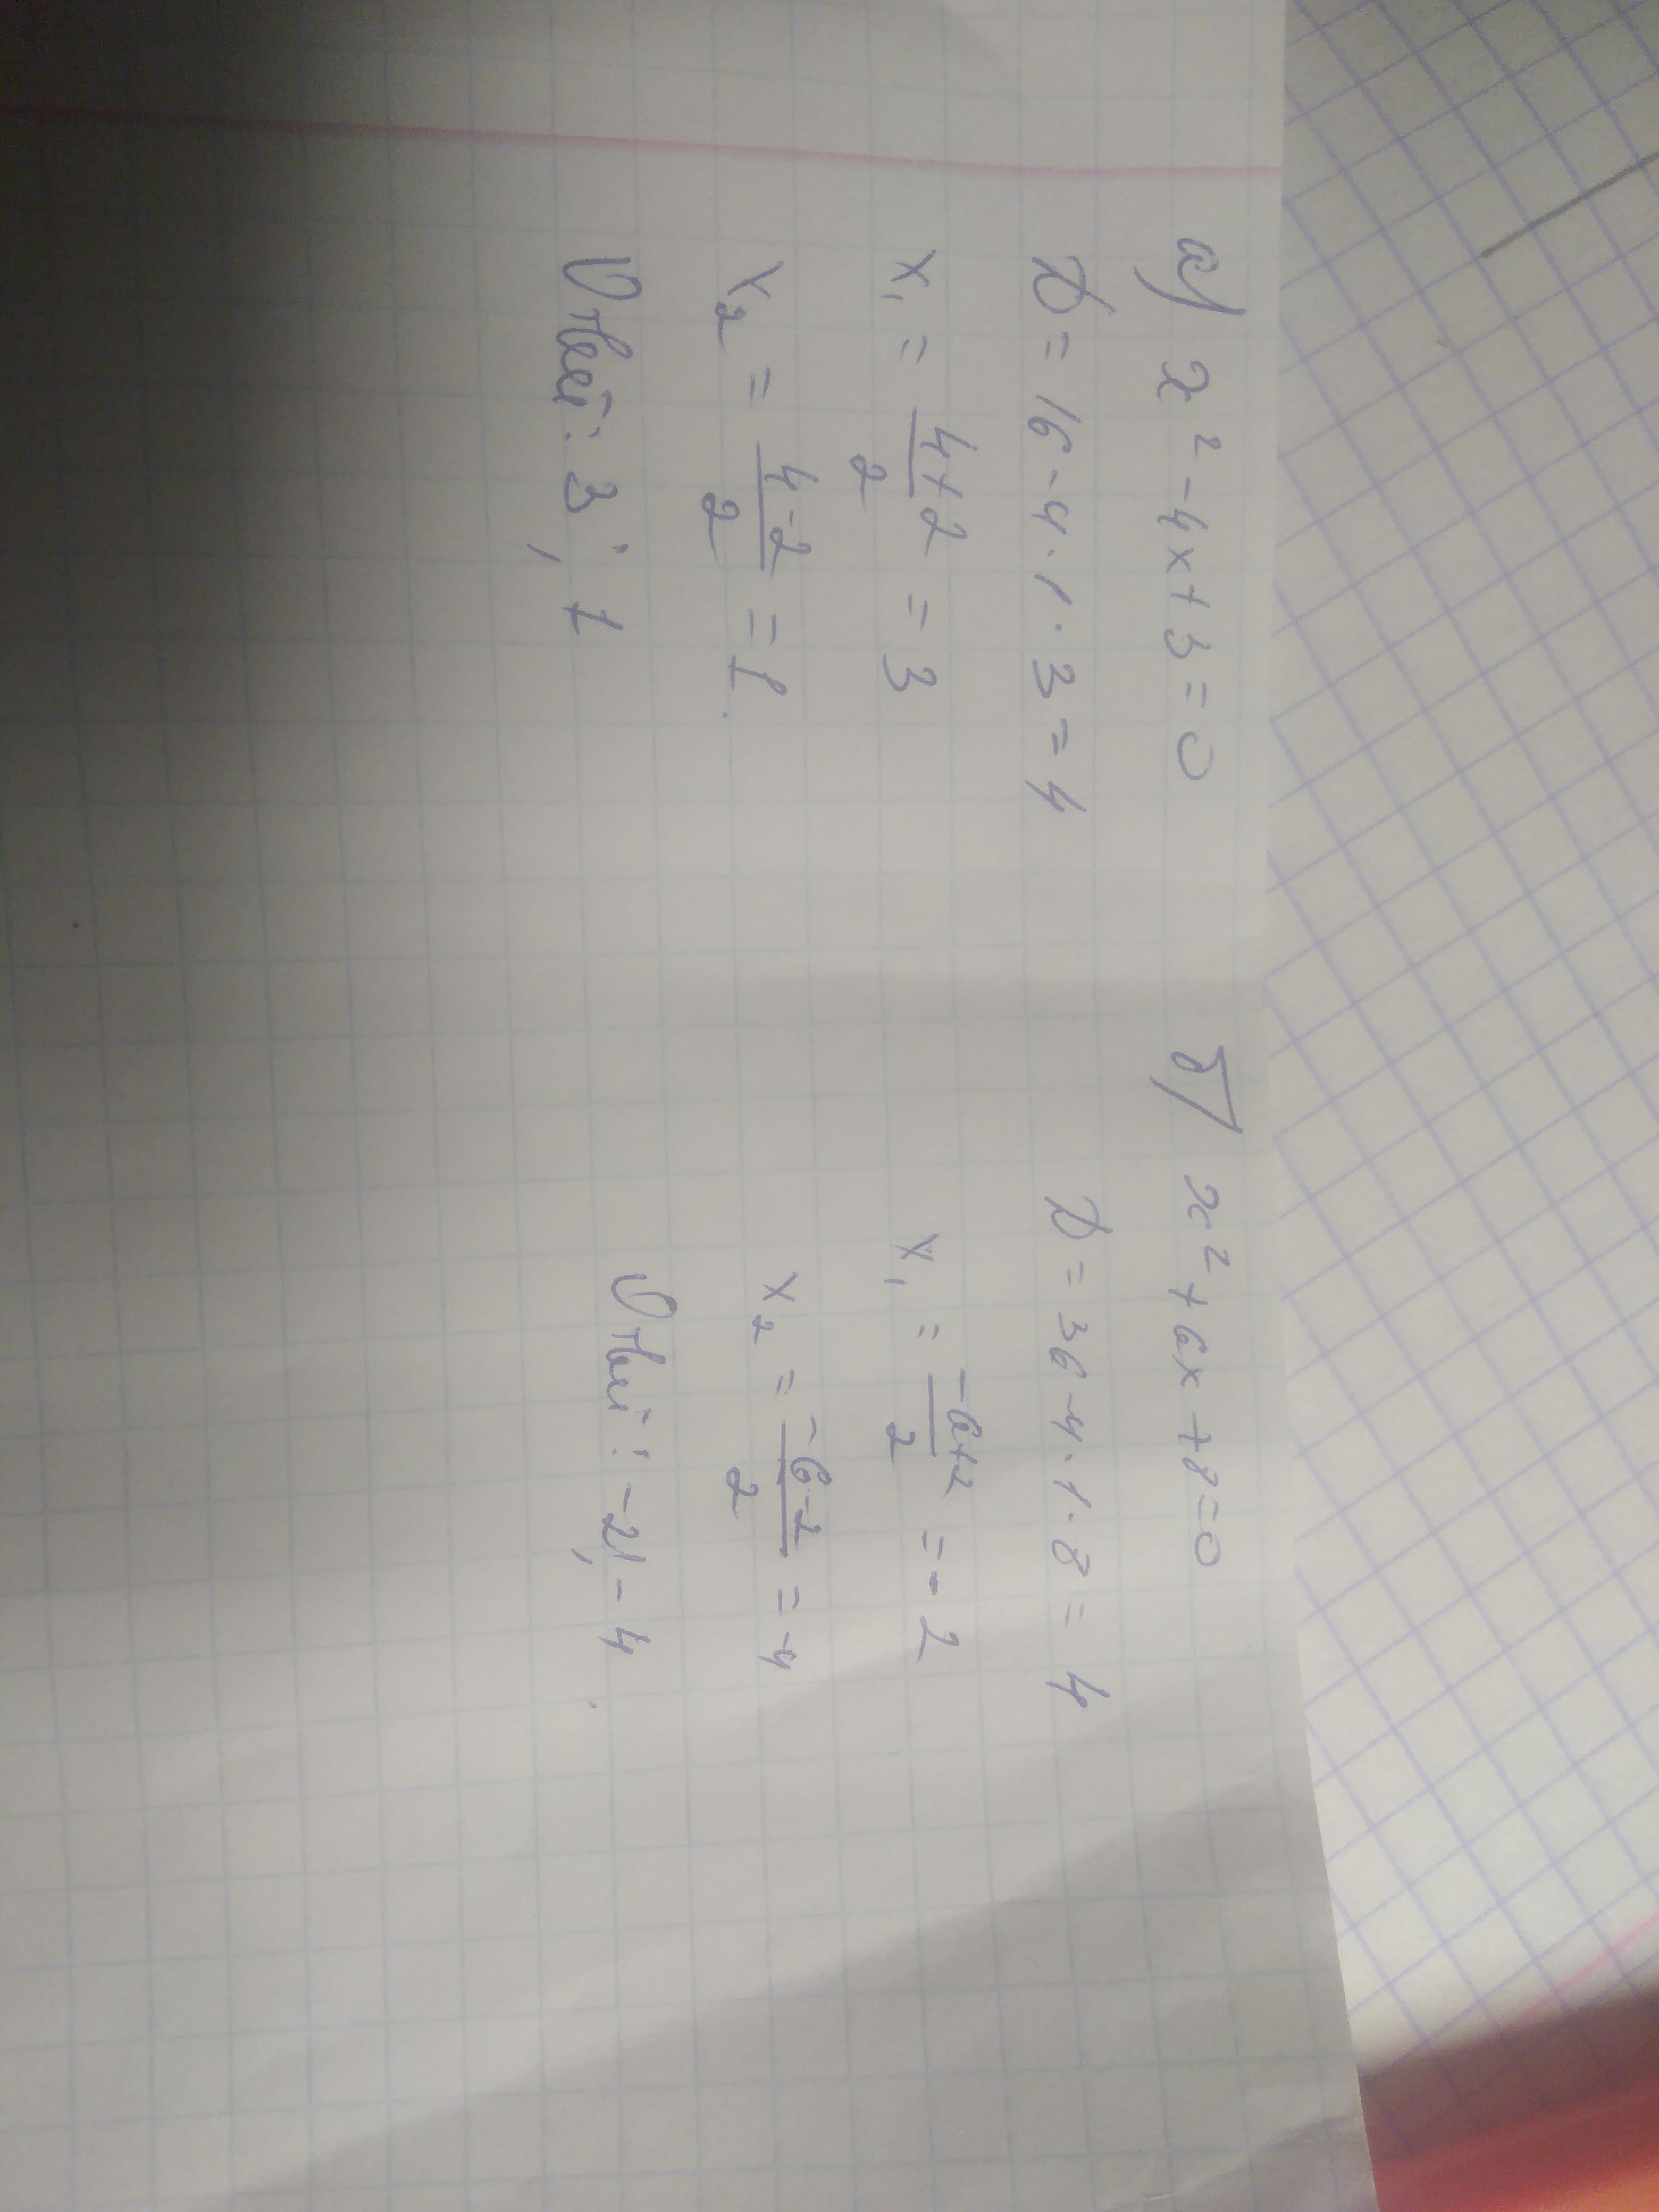 а) x² - 4x + 3 = 0
D = 16 - 4 · 1 · 3 = 4
x₁ = (4+2)/2 = 3
x₂ = (4-2)/2 = 1.
Ответ: 3; 1
б) x² + 6x + 8 = 0
D = 36 - 4 · 1 · 8 = 4
x₁ = (-6+2)/2 = -2
x₂ = (-6-2)/2 = -4
Ответ: -2; -4.